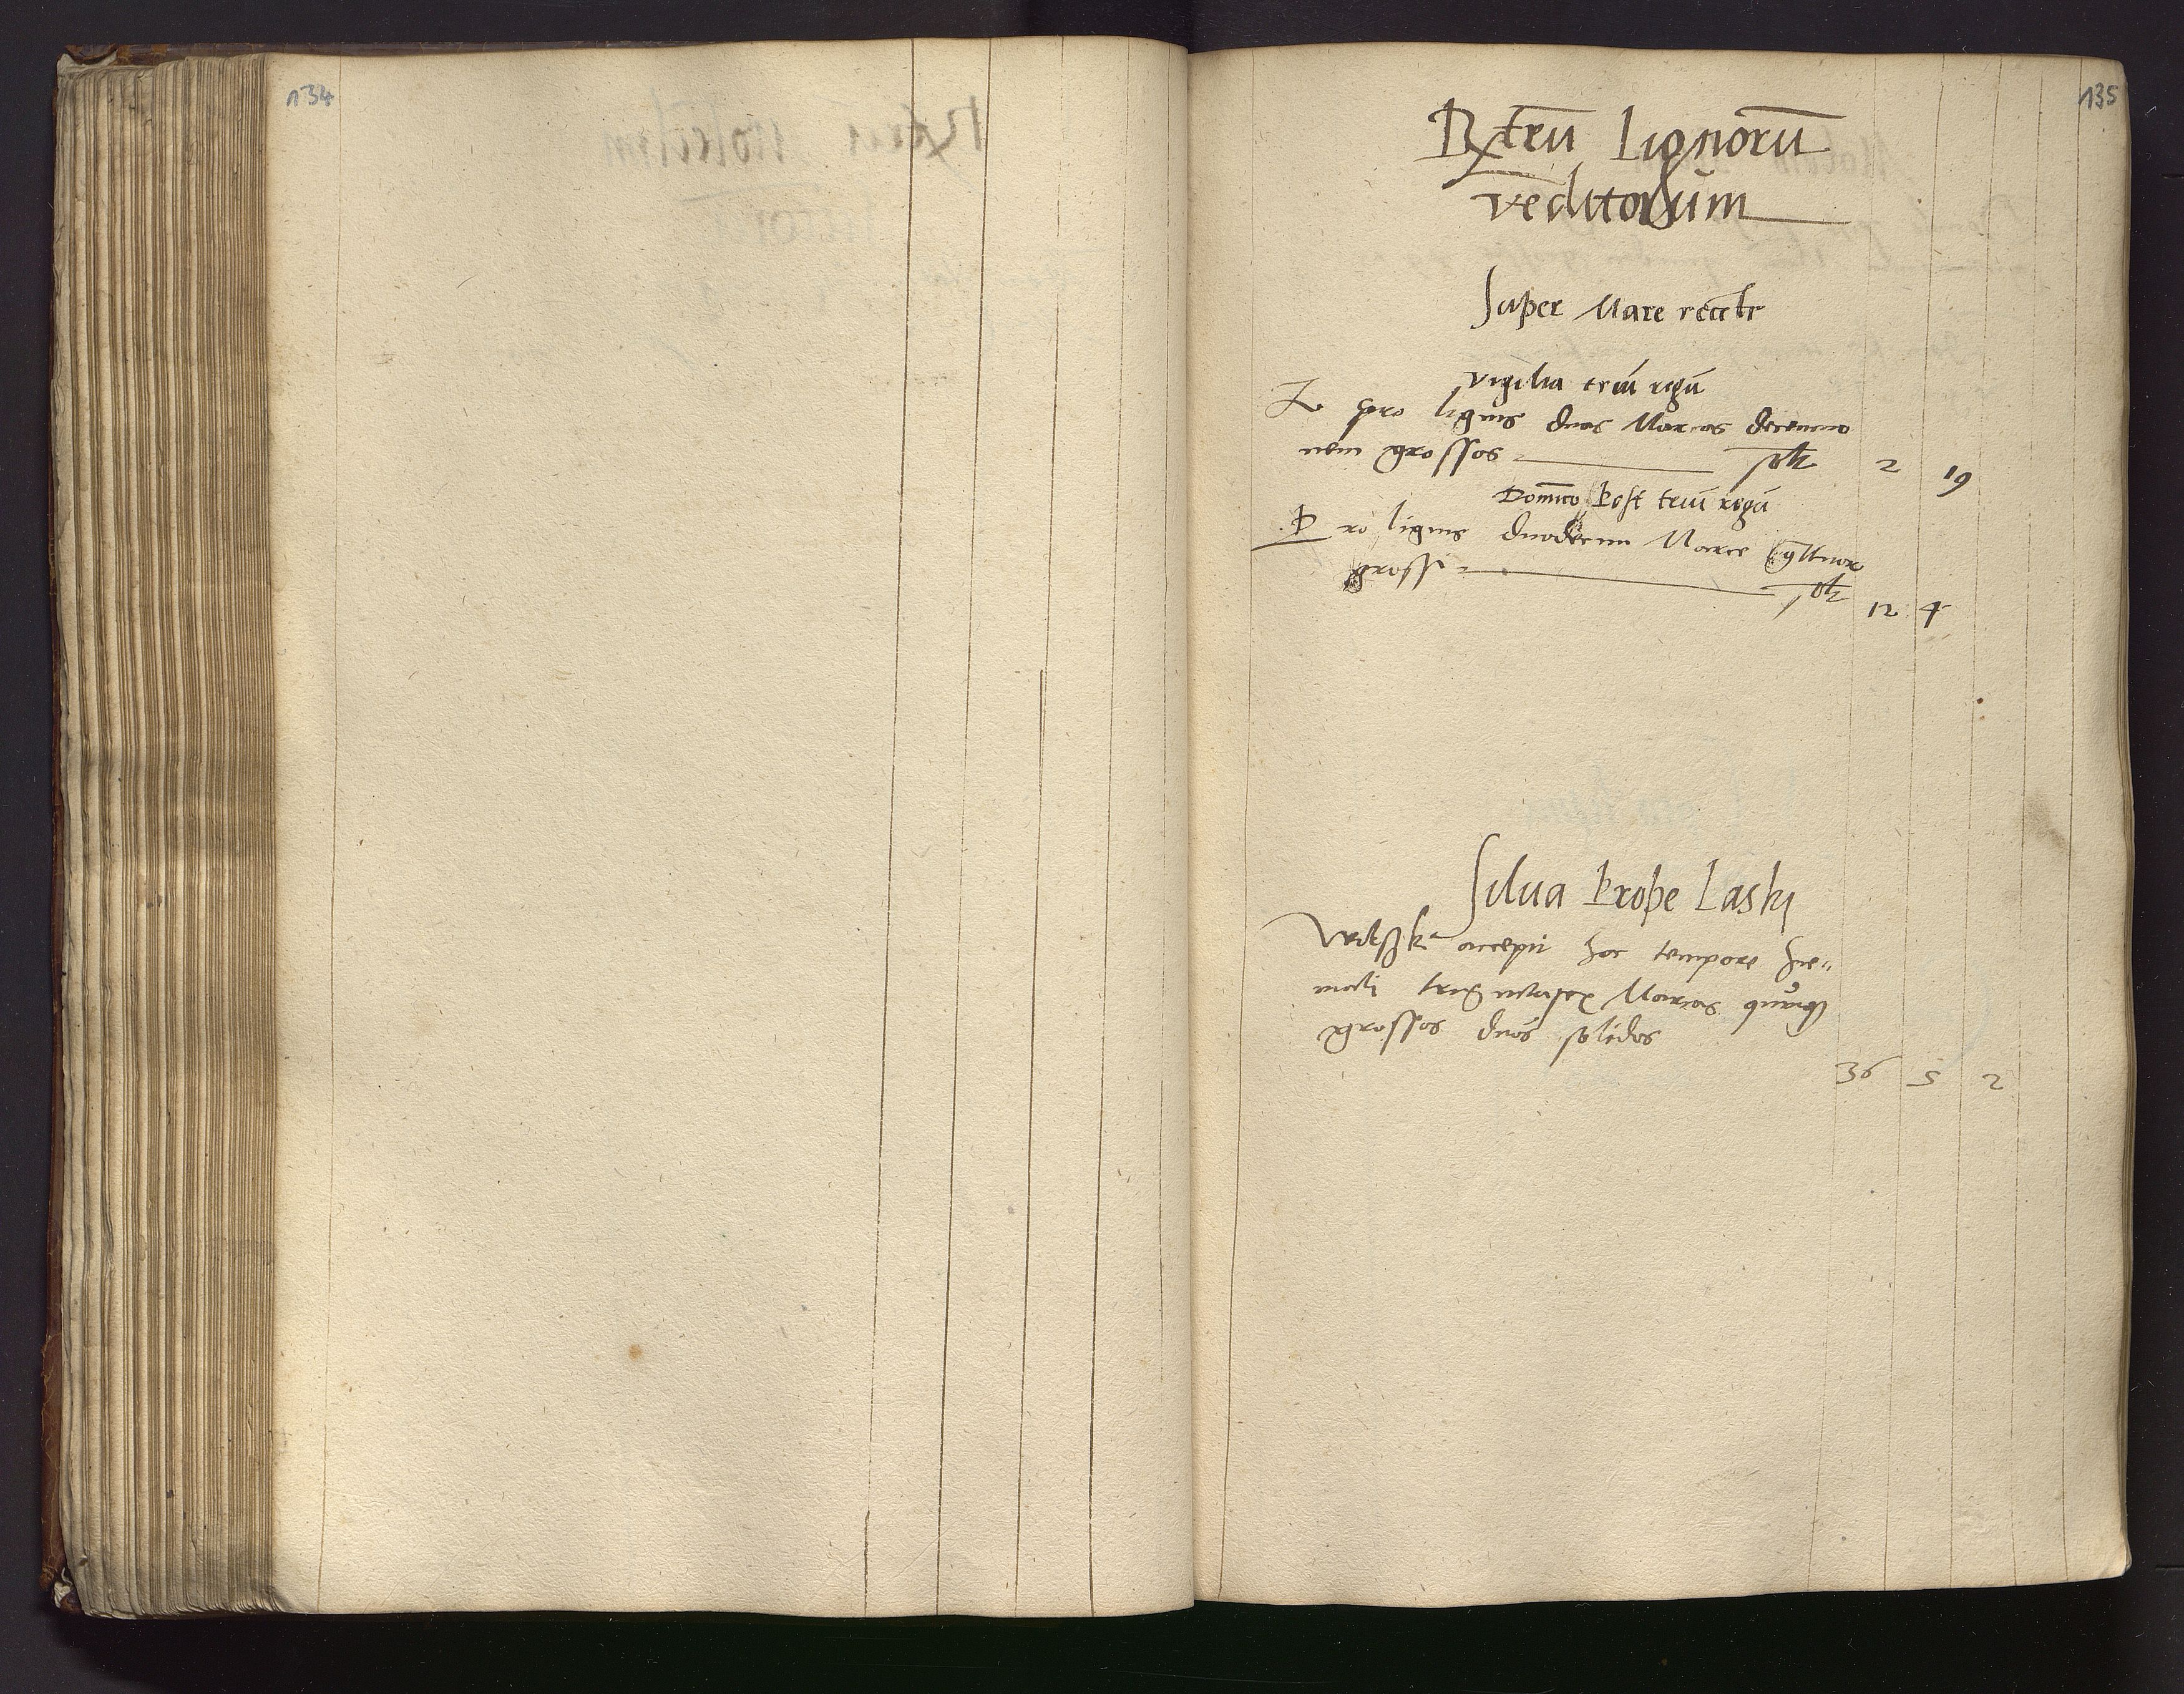 134
135
Rxtrũ Lignorũ
vẽditorum
Super Mare recẽtr
Vigilia triũ regũ
pro lignis duas Marcas decemno
nem grossos solt 2 19
Dominico Post triũ regũ
Pro lignis duodecim Marce quattuor
grossi solt 12 4
Silua Prope Laski
accepit hoc tempore hie„
mali trigintasex Marcas quinque
grossos duos solidos
36 5 2